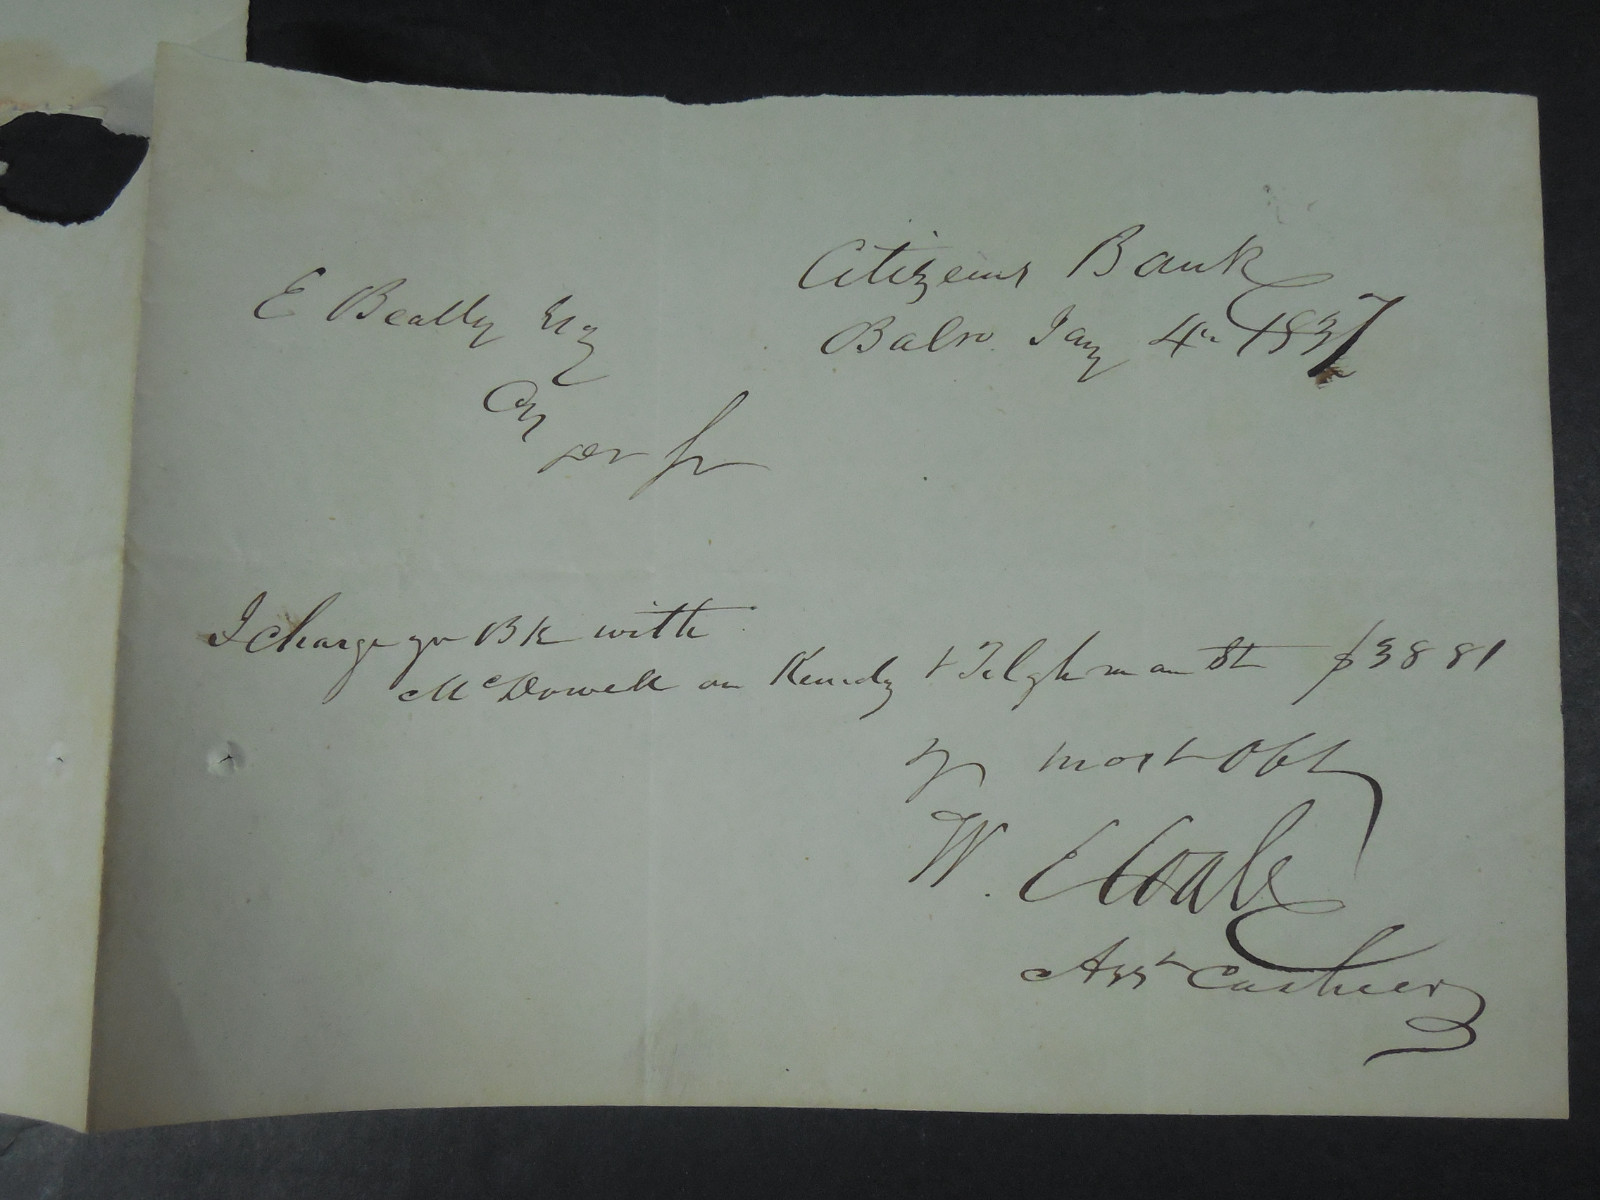 Citizens Bank
Balto Jany 4th 1837
E Beatty Esq
Cy
Dr Sr
I charge yr Bk with
McDowell on Kenedy & Tilghman St $3881
yr most Obt
W. E Coale
Asst Cashier